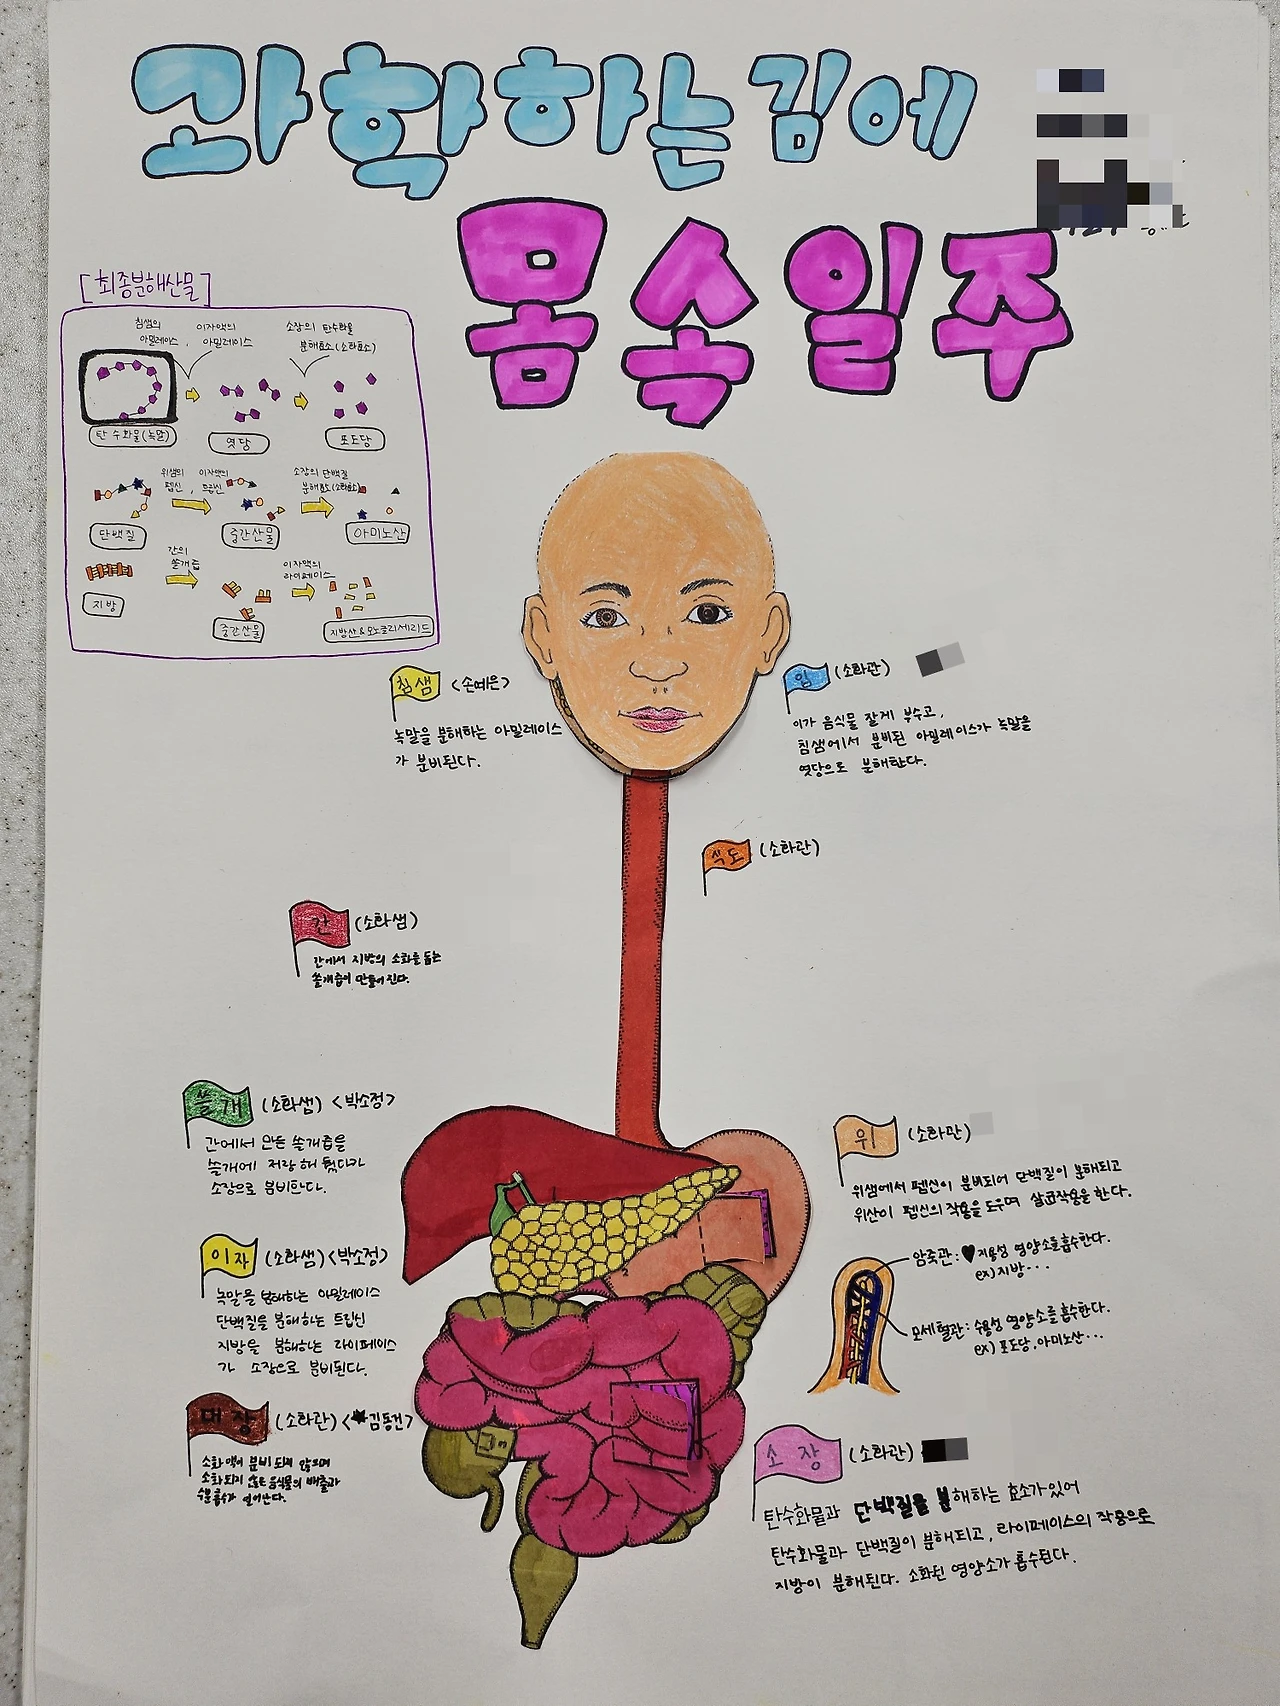 과학하는김에
몸속일주
[최종분해산물]
침샘의
아밀레이스,
이자액의
아밀레이스
소장의 탄수화물
분해효소(소화효소)
탄수화물(녹말)
엿당
포도당
위샘의
펩신,
이자액의
트립신
소장의 단백질
분해효소(소화효소)
단백질
중간산물
아미노산
간의
쓸개즙
이자액의
라이페이스
지방
중간산물
지방산&모노글리세리드
침샘 <손예은>
녹말을 분해하는 아밀레이스
가 분비된다.
입 (소화관)
이가 음식물 잘게 부수고,
침샘에서 분비된 아밀레이스가 녹말을
엿당으로 분해한다.
식도 (소화관)
간 (소화샘)
간에서 지방의 소화를 돕는
쓸개즙이 만들어진다.
쓸개 (소화샘) <박소정>
간에서 만든 쓸개즙을
쓸개에 저장해 뒀다가
소장으로 분비한다.
위 (소화관)
위샘에서 펩신이 분비되어 단백질이 분해되고
위산이 펩신의 작용을 도우며 살균작용을 한다.
이자 (소화샘) <박소정>
녹말을 분해하는 아밀레이스
단백질을 분해하는 트립신
지방을 분해하는 라이페이스
가 소장으로 분비된다.
암죽관: 지용성 영양소를 흡수한다.
ex)지방...
모세혈관: 수용성 영양소를 흡수한다.
ex) 포도당, 아미노산...
대장 (소화관) <김동건>
소화액이 분비되지 않으며
소화되지 않은 음식물의 배출과
수분흡수가 일어난다.
소장 (소화관)
탄수화물과 단백질을 분해하는 효소가 있어
탄수화물과 단백질이 분해되고, 라이페이스의 작용으로
지방이 분해된다. 소화된 영양소가 흡수된다.